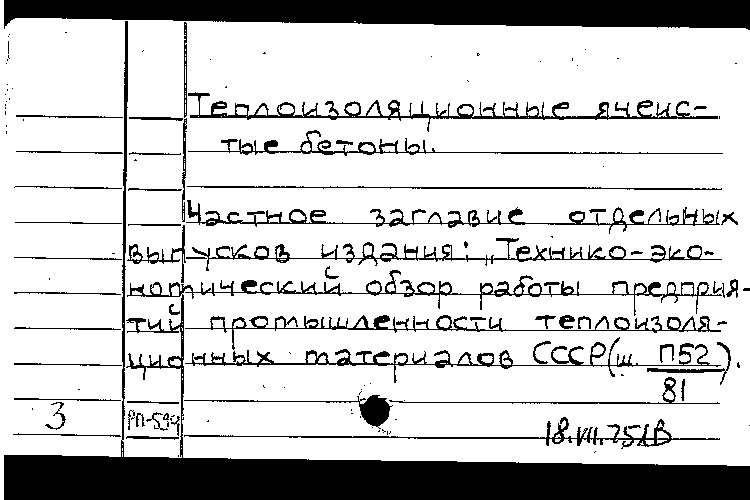 Теплоизоляционные ячеис-
тые бетоны.
Частное заглавие отдельных
выпусков издания: „Технико-эко-
номический обзор работы предприя-
тий промышленности теплоизоля-
ционных материалов СССР (ш. П52/81).
3 РП-594
18.VII.75